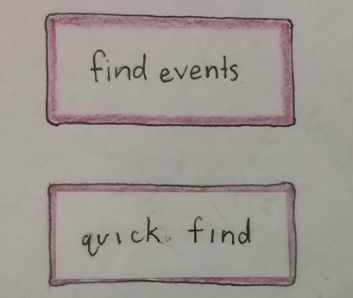 find events
quick find